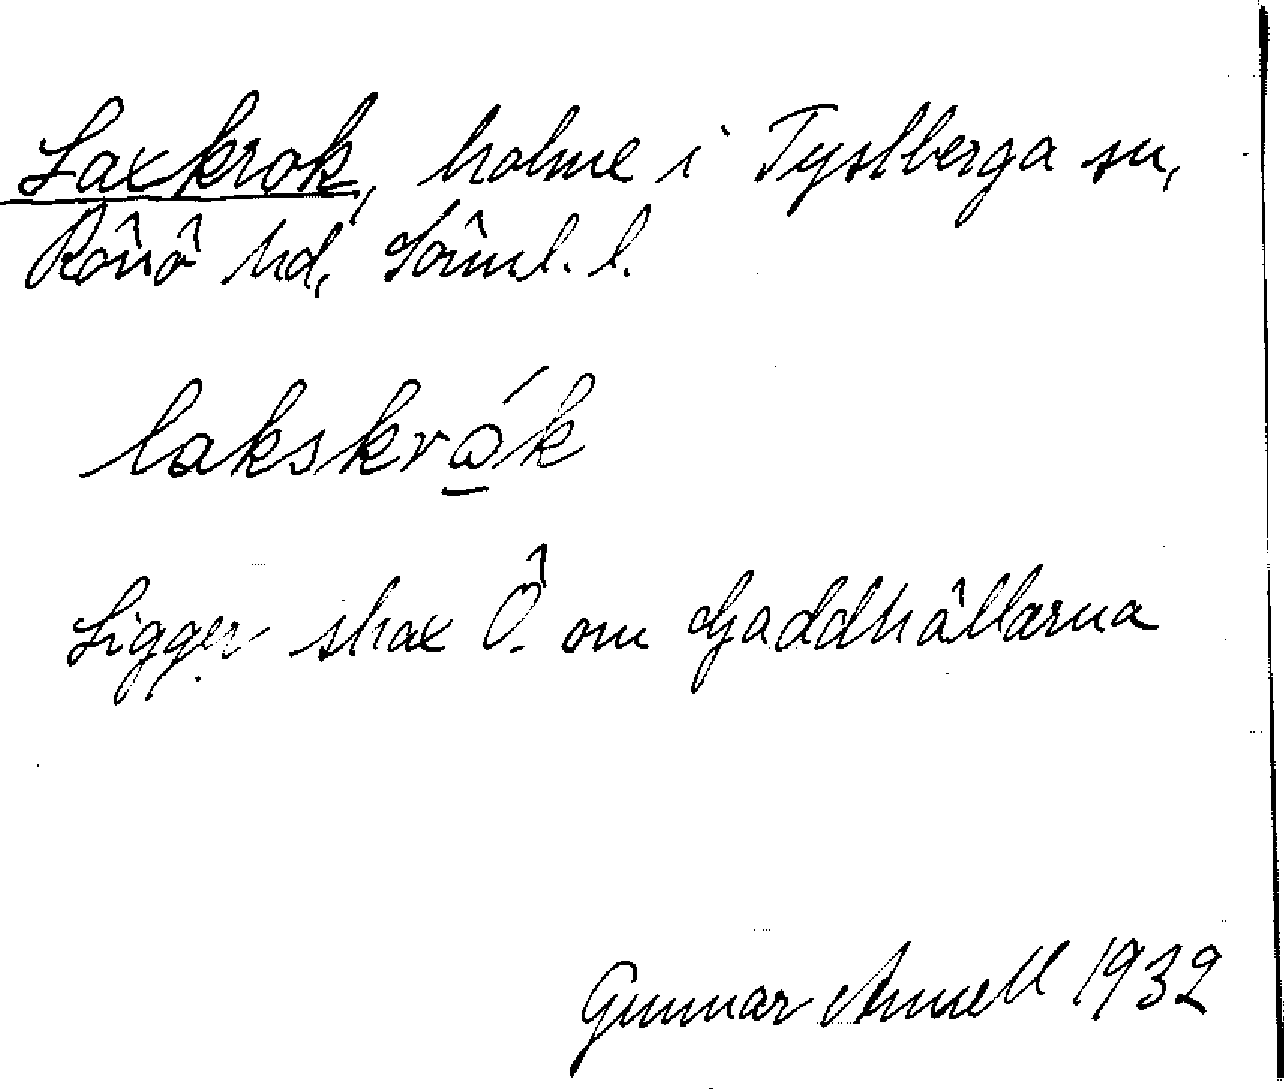 Laxkrok, holme i Tystberga sn,
Rönö hd, Söml. l.
lakskrώ̲k
Ligger strax Ö. om Gäddhällarna
Gunnar Arnell 1932